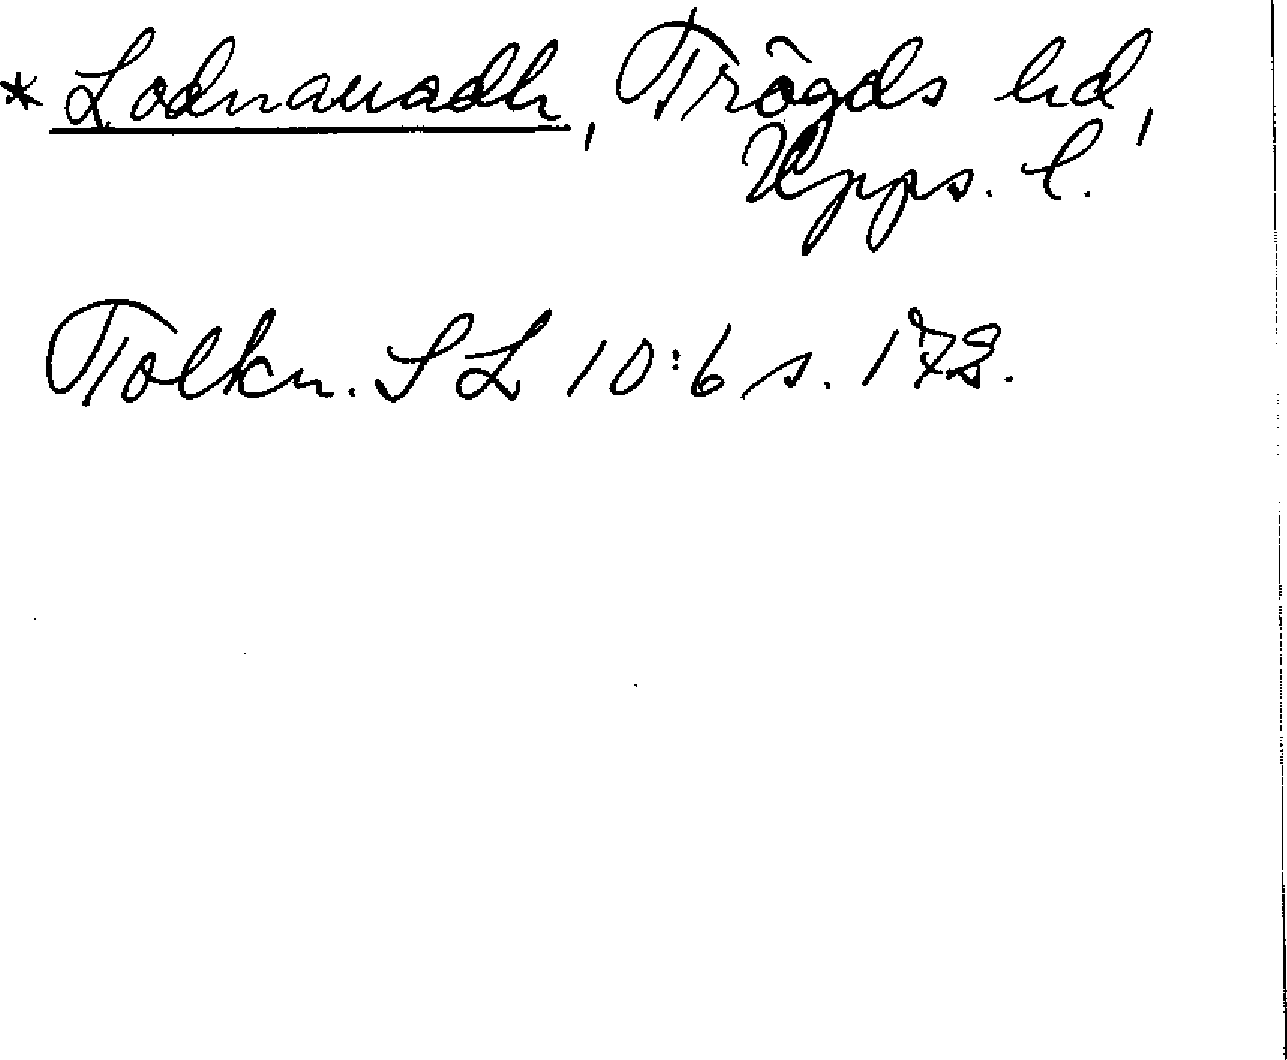 * Lodnauadh, Trögds hd,
Upps. l.
Tolkn. SL 10:6 s. 173.